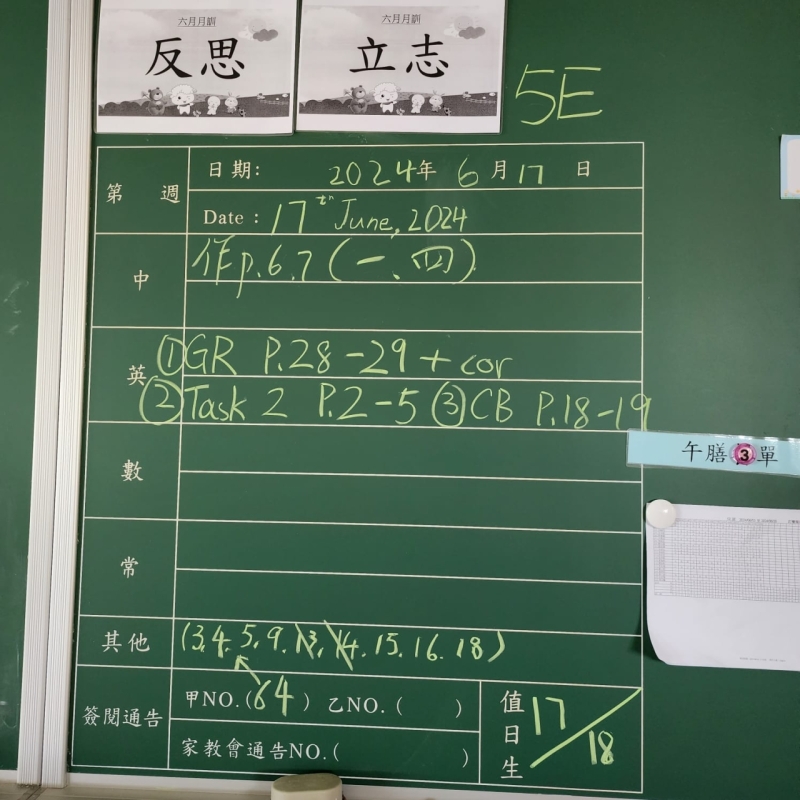 六月月訓
反思
六月月訓
立志
5E
第 週
日期: 2024年 6月17日
Date : 17th June, 2024
中
作p.6.7 (一、四)
英
①GR P.28-29 + cor
②Task 2 P.2-5 ③CB P.18-19
數
常
其他
(3,4,5,9,13,14,15,16,18)
簽閱通告
甲NO.(64) 乙NO.( )
家教會通告NO.( )
值日生
17/18
午膳 3 單